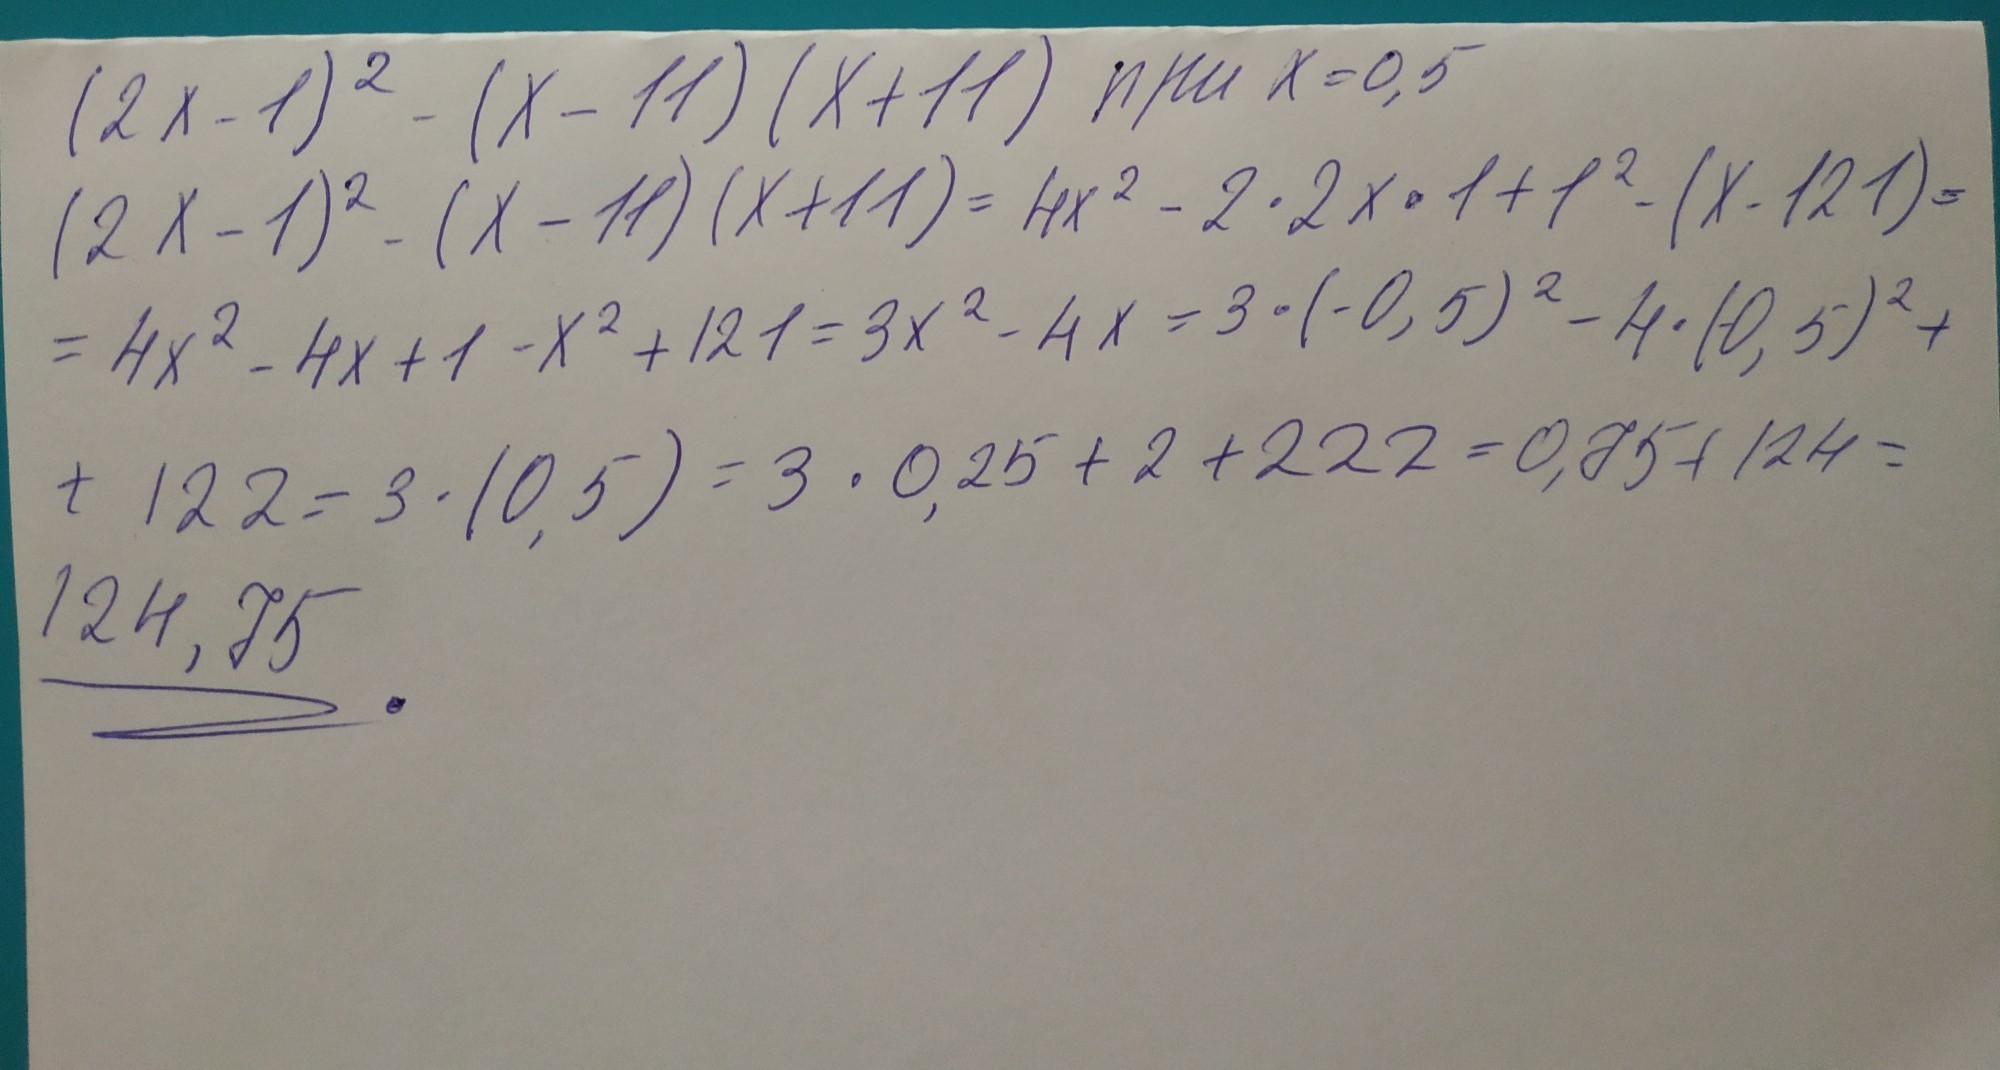 (2x-1)² - (x-11)(x+11) при x=0,5
(2x-1)² - (x-11)(x+11) = 4x² - 2·2x·1+1² - (x-121) =
= 4x² - 4x+1 -x² +121 = 3x² - 4x = 3·(-0,5)² - 4·(0,5)² +
+ 122 = 3·(0,5) = 3·0,25+2+222 = 0,75+124 =
124,75